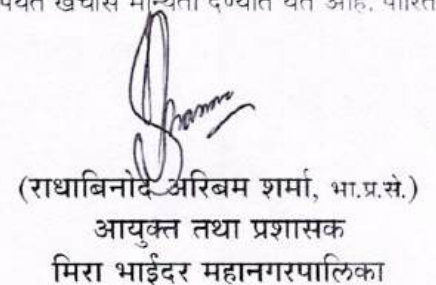 पर्यंत खर्चास मान्यता देण्यात येत आहे. पारित
(राधाबिनोद अरिबम शर्मा, भा.प्र.से.)
आयुक्त तथा प्रशासक
मिरा भाईंदर महानगरपालिका